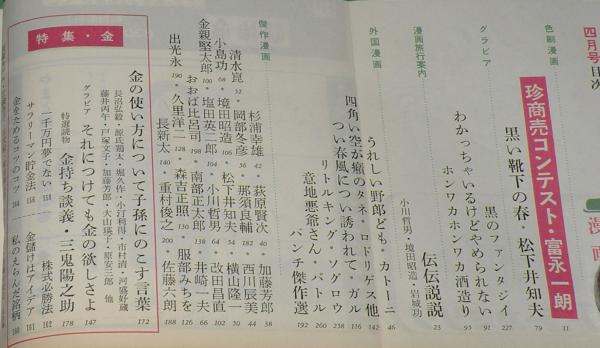 四月号目次
色刷漫画
珍商売コンテスト・富永一朗 11
黒い靴下の春・松下井知夫 79
グラビア
黒のファンタジイ 127
わかっちゃいるけどやめられない 91
ホンワカホンワカ酒造り 93
漫画旅行案内
伝伝説説 23
小川哲男・境田昭造・岩城功
外国漫画
うれしい野郎ども・カトーニ 142
四角い空が癪のタネ・ロドリゲス他 46
つい春風につい誘われて・ガル 116
リトルキング・ソグロウ 192
意地悪爺さん・バトル 238
パンチ傑作選 260
傑作漫画
杉浦幸雄 42
萩原賢次 40
加藤芳郎 38
清水崑 52
岡部冬彦 36
那須良輔 182
西川辰美 44
小島功 68
境田昭造 106
松下井知夫 54
横山隆一 30
金親堅太郎 100
塩田英二郎 104
小川哲男 64
改田昌直 102
おおば比呂司 198
南部正太郎 138
井崎一夫 66
出光永 190
久里洋二 128
森吉正照 130
服部みちを 126
長新太 140
重村俊之 200
佐藤六朗 188
特集・金
金の使い方について子孫にのこす言葉 172
長沼弘毅・源氏鶏太・堀久作・小汀利得・市村清・河盛好蔵
藤井丙午・戸塚文子・加藤芳郎・大山瑛子・原安三郎 他
グラビア
それにつけても金の欲しさよ 147
特選読物
金持ち談義・三鬼陽之助 178
一千万円夢でない 151
株式必勝法 162
サラリーマン貯金法 158
金儲けはアイデア 181
金をためるコツのコツ 184
私のえらんだ銘柄 166
漫画